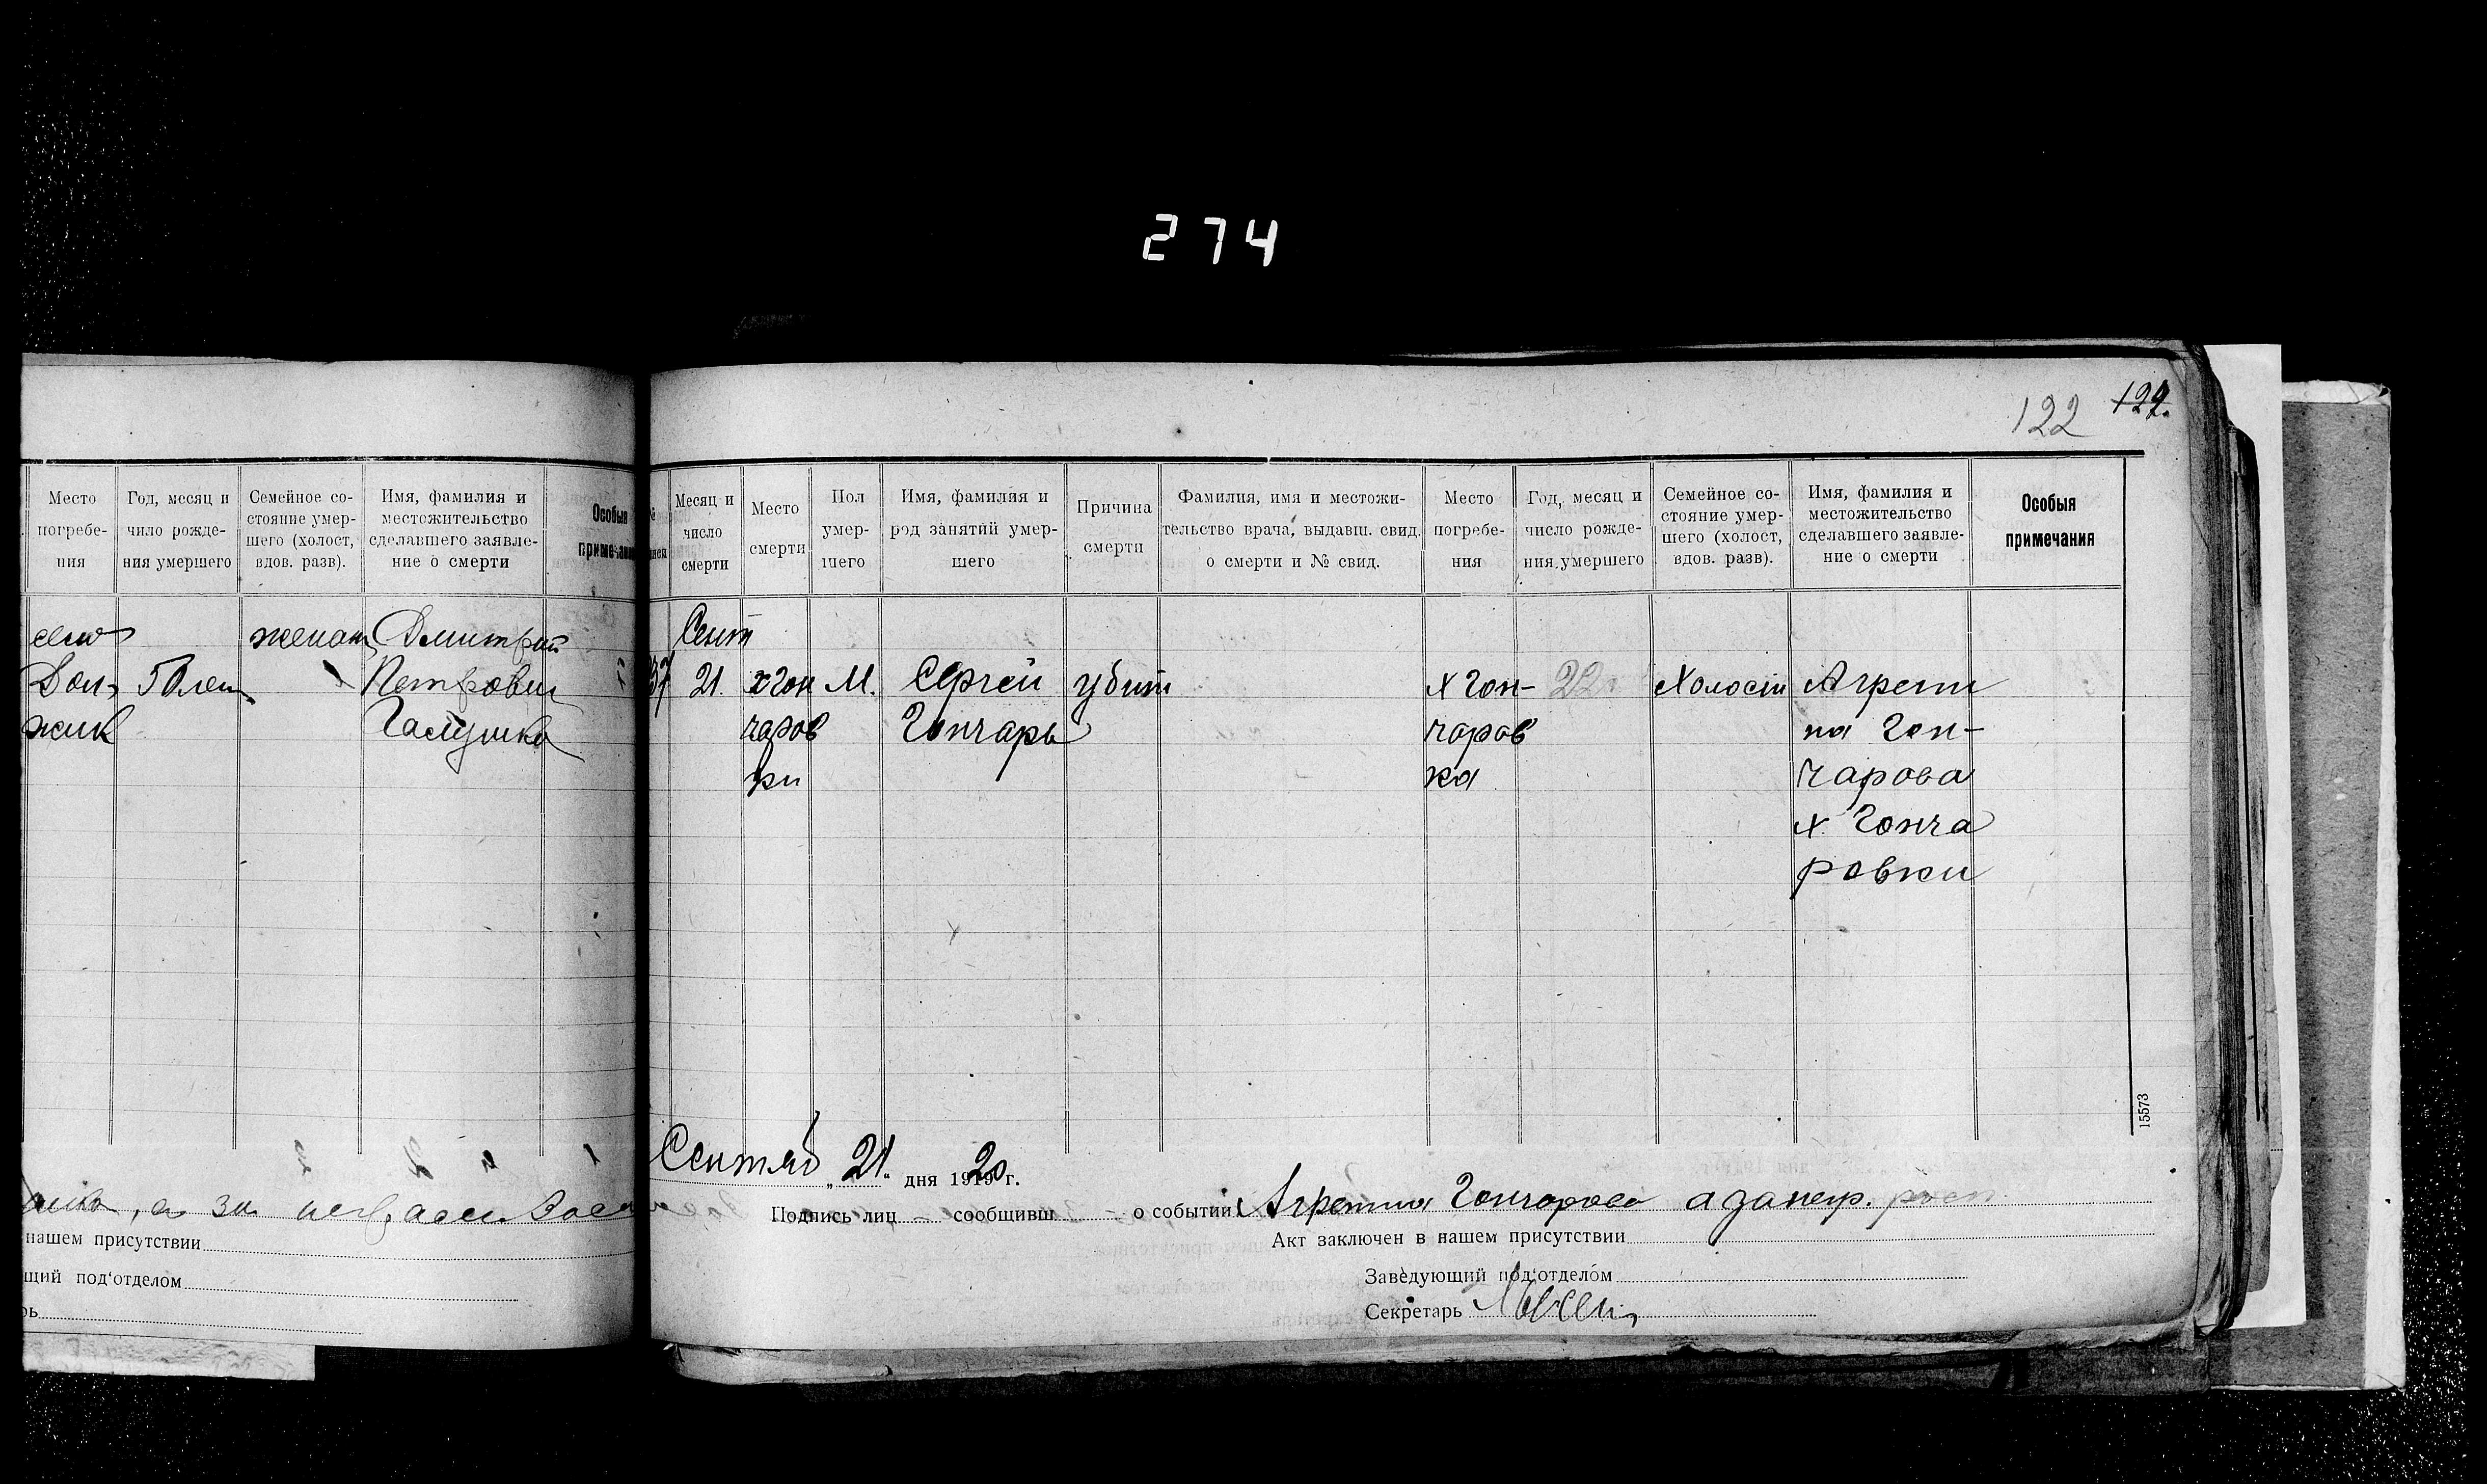 274
122 122.
Место
погребе-
ния
Год, месяц и
чило рожде-
ния умершего
Семейное со-
стояние умер-
шего (холост,
вдов. разв).
Имя, фамилия и
местожительство
сделавшего заявле-
ние о смерти
Особыя
примечания
село
Дол-
жик
50 лет
женат
Дмитрий
Петрович
Галушка
нашем присутствии
щий под'отделом
рь
№
Месяц и
число
смерти
Место
смерти
Пол
умер-
шего
Имя, фамилия и
род занятий умер-
шего
Причина
смерти
Фамилия, имя и местожи-
тельство врача, выдавш. свид.
о смерти и № свид.
Место
погребе-
ния
Год, месяц и
число рожде-
ния умершего
Семейное со-
стояние умер-
шего (холост,
вдов. разв).
Имя, фамилия и
местожительство
сделавшего заявле-
ние о смерти
Особыя
примечания
37
Сент
21.
х Гон
чаров
ки
М.
Сергей
Гончарь
убит
х Гон-
чаров
ка
22
Холост
Агрепи
на Гон-
чарова
х. Гонча
ровки
15573
Сентяб „ 21. “ дня 1919 20 г.
Подпись лиц — сообщивш о событии Агрепина Гончарова а за негр.
Акт заключен в нашем присутствии
Заведующий под'отделом
Секретарь